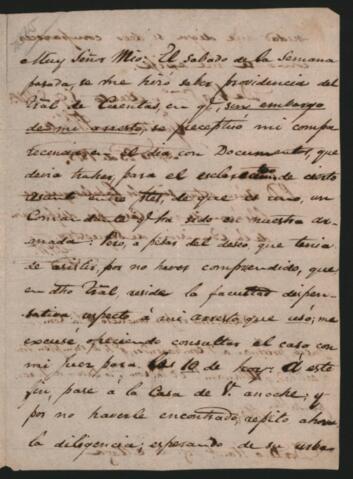 Muy Señor Mio: El Sabado de la Semana
pasada, se me hizó saber providencia del
Tral de Cuentas, en qe, sin embargo
de mi arresto, se preceptuó mi compa
recencia en el dia, con Documentos, que
devia haber, para el esclarecimto de cierto
Asunto entre tres, de que es uno, un
Comandante qe ha sido en nuestra ar-
mada: Pero, a pesar del deseo, que tenia
de asistir, por no haver comprendido, que
en dho Tral, reside la facultad dispen-
sativa respecto á mi arresto que uso; me
excusé ofreciendo consultar el caso con
mi juez para las 10 de hoy. A este
fin, pasé a la Casa de V. anoche; y
por no haverle encontrado, repito ahora
la diligencia; esperando de su urba-